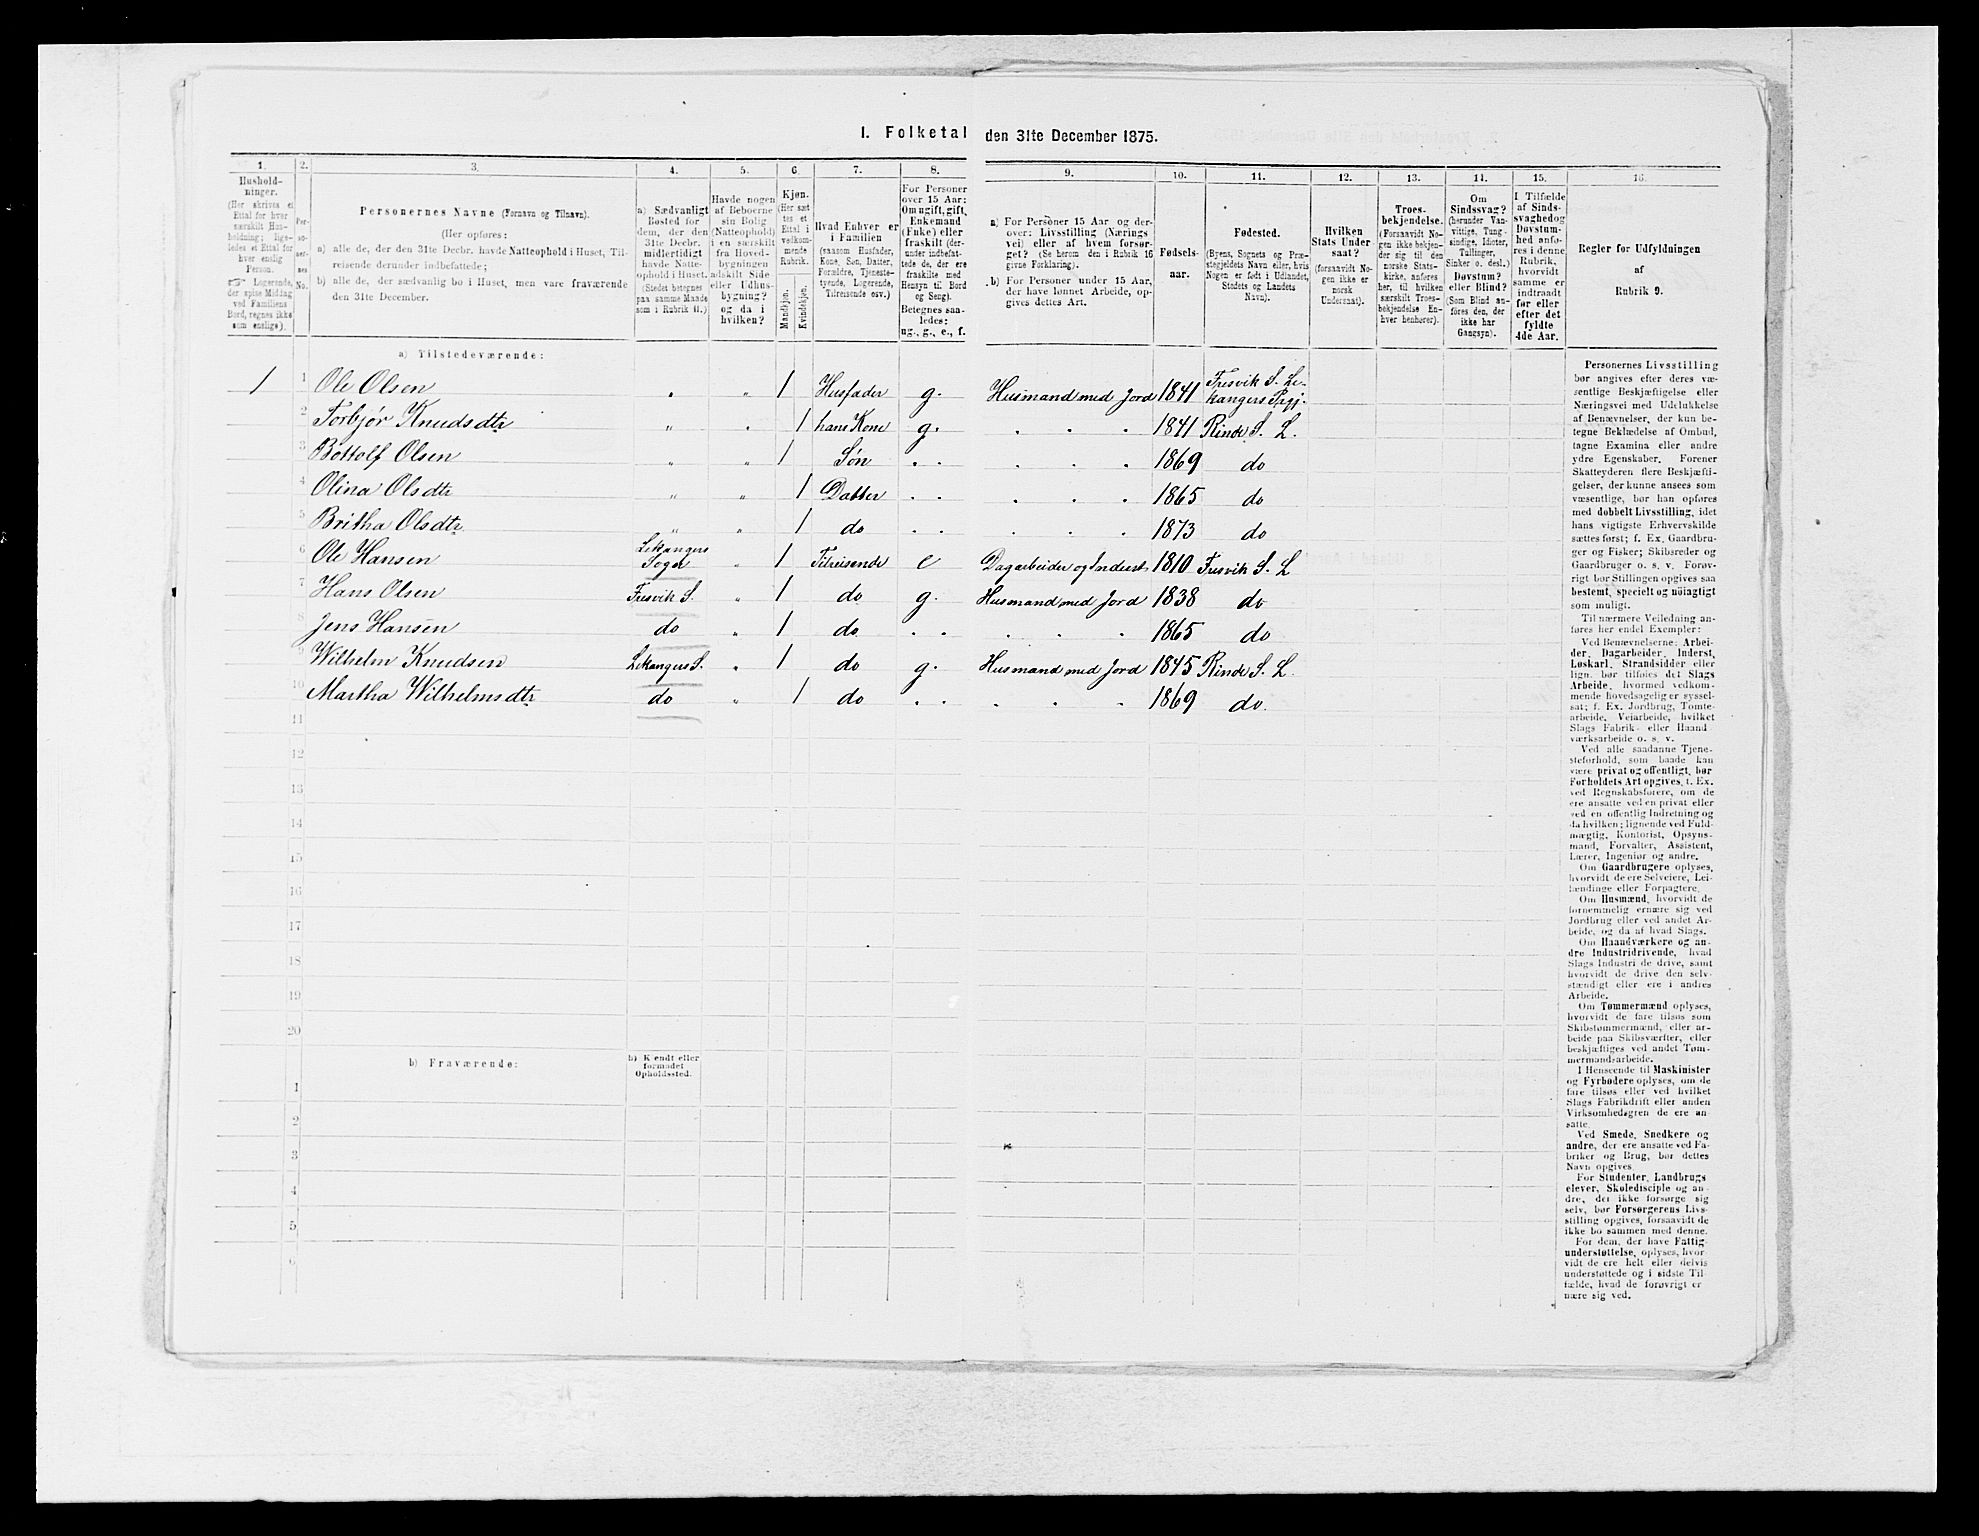 I. Folketal den 31te December 1875.
1. 2. 3. 4. 5. 6. 7. 8. 9. 10. 11. 12. 13. 14. 15. 16.
Hushold-
ninger.
(Her skrives et
Ettal for hver
særskilt Hus-
holdning; lige-
ledes et Ettal for
hver enslig
Person.
Logerende,
der spise Middag
ved Familiens
Bord, regnes ikke
som enslige).
Per-
so-
ner-
nes
No.
Personernes Navne (Fornavn og Tilnavn).
(Her opføres:
a) alle de, der den 31te Decbr. havde Natteophold i Huset, Til-
reisende derunder indbefattede;
b) alle de, der sædvanlig bo i Huset, men vare fraværende
den 31te December.
a) Sædvanligt
Bosted for
dem, der den
31te Decbr.
midlertidigt
havde Natte-
ophold i Huset.
(Stedet betegnes
paa samme Maade
som i Rubrik 11.)
Havde nogen
af Beboerne
sin Bolig
(Natteophold)
i en særskilt
fra Hoved-
bygningen
adskilt Side-
eller Udhus-
bygning?
og da i
hvilken?
Kjøn.
(Her sæt-
tes et
Ettal i
vedkom-
mende
Rubrik.
Mandkjøn.
Kvindekjøn.
Hvad Enhver er
i Familien
(saasom Husfader,
Kone, Søn, Datter,
Forældre, Tjeneste-
tyende, Logerende,
Tilreisende osv.)
For Personer
over 15 Aar:
Om ugift, gift,
Enkemand
(Enke) eller
fraskilt (der-
under indbefat-
tede de, der ere
fraskilte med
Hensyn til Bord
og Seng).
Betegnes saa-
ledes:
ug., g., e., f.
a) For Personer 15 Aar og der-
over: Livsstilling (Nærings
vei) eller af hvem forsør-
get? (Se herom den i Rubrik 16
givne Forklaring).
b) For Personer under 15 Aar,
der have lønnet Arbeide, op-
gives dettes Art.
Fødsels-
aar.
Fødested.
(Byens, Sognets og Præ-
stegjeldets Navn eller, hvis
Nogen er født i Udlandet,
Stedets og Landets
Navn).
Hvilken
Stats Under-
saat?
(forsaavidt No-
gen ikke er
norsk
Undersaat).
Troes-
bekjendelse.
(Forsaavidt No-
gen ikke bekjen-
der sig til den
norske Stats-
kirke, anføres
her, til hvilken
særskilt Troes-
bekjendelse En-
hver henhører).
Om
Sindssvag?
(herunder Van-
vittige, Tung-
sindige, Idioter,
Tullinger,
Sinker o. desl.)
Døvstum?
eller Blind?
(Som Blind an-
føres den, der
ikke har
Gangsyn).
I Tilfælde
af Sinds-
svaghed og
Døvstum-
hed anfø-
res i denne
Rubrik,
hvorvidt
samme er
indtraadt
før eller
efter det
fyldte
4de Aar.
Regler for Udfyldningen
af
Rubrik 9.
a) Tilstedeværende:
1 1 Ole Olsen " " 1 Husfader g. Husmand med Jord 1841 Fresvik S. Le-
kangers Prgj.
2 Torbjør Knudsdtr " " 1 hans Kone g. " " " 1841 Rinde S. L.
3 Bottolf Olsen " " 1 Søn " " " " " 1869 do
4 Olina Olsdtr " " 1 Datter " " " " " 1865 do
5 Britha Olsdtr " " 1 do " " " " " 1873 do
6 Ole Hansen Lekangers
Sogn " 1 Tilreisende e Dagarbeider og Inderst 1810 Fresvik S. L
7 Hans Olsen Fresvik S. " 1 do g. Husmand med Jord 1838 do
8 Jens Hansen do " 1 do " " " " " 1865 do
9 Wilhelm Knudsen Lekangers S. " 1 do g. Husmand med Jord 1845 Rinde S. L.
10 Martha Wilhelmsdtr do " 1 do " " " " " 1869 do.
11
12
13
14
15
16
17
18
19
20
b) Fraværende:
b) Kendt eller
formodet
Opholdssted.
1
2
3
4
5
6
Personernes Livsstilling
bør angives efter deres væ-
sentlige Beskjæftigelse eller
Næringsvei med Udelukkelse
af Benævnelser, der kun be-
tegne Beklædelse af Ombud,
tagne Examina eller andre
ydre Egenskaber. Forener
Skatteyderen flere Beskjæfti-
gelser, der kunne ansees som
væsentlige, bør han opføres
med dobbelt Livsstilling, idet
hans vigtigste Erhvervskilde
sættes først; f. Ex. Gaardbru-
ger og Fisker; Skibsreder og
Gaardbruger o. s. v. Forøv-
rigt bør Stillingen opgives saa
bestemt, specielt og nøiagtigt
som muligt.
Til nærmere Veiledning an-
føres her endel Exempler:
Ved Benævnelserne: Arbei-
der, Dagarbeider, Inderst,
Løskarl, Strandsidder eller
lign. bør tilføies det Slags
Arbeide, hvormed vedkom-
mende hovedsagelig er syssel-
sat; f. Ex. Jordbrug, Tomte-
arbeide, Veiarbeide, hvilket
Slags Fabrik- eller Haand-
værksarbeide o. s. v.
Ved alle saadanne Tjene-
steforhold, som baade kan
være privat og offentligt, bør
Forholdets Art opgives, t. Ex.
ved Regnskabsførere, om de
ere ansatte ved en privat eller
ved en offentlig Indretning og
da hvilken; lignende ved Fuld-
mægtig, Kontorist, Opsyns-
mand, Forvalter, Assistent,
Lærer, Ingeniør og andre.
Om Gaardbrugere oplyses,
hvorvidt de ere Selveiere, Lei-
lændinge eller Forpagtere.
Om Husmænd, hvorvidt de
fornemmelig ernære sig ved
Jordbrug eller ved andet Ar-
beide, og da af hvad Slags.
Om Haandværkere og an-
dre Industridrivende, hvad
Slags Industri de drive, samt
hvorvidt de drive den selv-
stændigt eller ere i andres
Arbeide.
Om Tømmermænd oplyses,
hvorvidt de fare tilsøs som
Skibstømmermænd, eller ar-
beide paa Skibsværfter, eller
beskjæftiges ved andet Tøm-
mermandsarbeide.
I Henseende til Maskinister
og Fyrbødere oplyses, om de
fare tilsøs eller ved hvilket
Slags Fabrikdrift eller anden
Virksomhedsgren de ere an-
satte.
Ved Smede, Snedkere og
andre, der ere ansatte ved Fa-
briker og Brug, bør dettes
Navn opgives.
For Studenter, Landbrugs
elever, Skoledisciple og an-
dre, der ikke forsørge sig
selv, bør Forsørgerens Livs-
stilling opgives, forsaavidt de
ikke bo sammen med denne.
For dem, der have Fattig-
understøttelse, oplyses, hvor-
vidt de ere helt eller delvis
understøttede og i sidste Til-
fælde, hvad de forøvrigt er
nære sig ved.